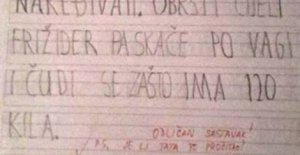 NAREĐIVATI. OBRSTI CIJELI
FRIŽIDER PA SKAČE PO VAGI
I ČUDI SE ZAŠTO IMA 120
KILA.
ODLIČAN SASTAVAK!
PS. JE LI TATA TO PROČITAO?